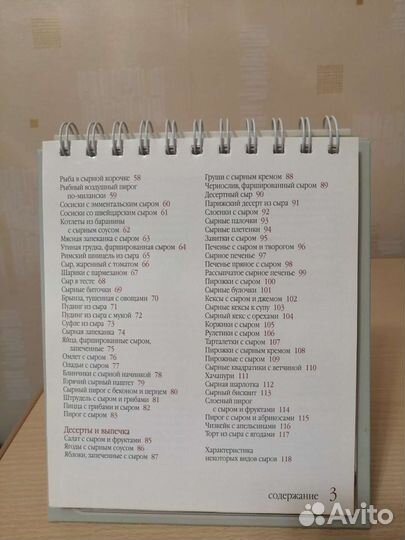 Рыба в сырной корочке 58
Рыбный воздушный пирог
по-милански 59
Сосиски с эмментальским сыром 60
Сосиски со швейцарским сыром 61
Котлеты из баранины
с сырным соусом 62
Мясная запеканка с сыром 63
Утиная грудка, фаршированная сыром 64
Римский шницель из сыра 65
Сыр, жаренный с томатом 66
Шарики с пармезаном 67
Сыр в тесте 68
Сырные биточки 69
Брынза, тушенная с овощами 70
Пудинг из сыра 71
Пудинг из сыра с мукой 72
Суфле из сыра 73
Сырная запеканка 74
Яйца, фаршированные сыром,
запеченные 75
Омлет с сыром 76
Оладьи с сыром 77
Блинчики с сырной начинкой 78
Горячий сырный паштет 79
Сырный пирог с беконом и перцем 80
Штрудель с сыром и грибами 81
Пицца с грибами и сыром 82
Пирог с сыром 83
Десерты и выпечка
Салат с сыром и фруктами 85
Ягоды с сырным соусом 86
Яблоки, запеченные с сыром 87
Груши с сырным кремом 88
Чернослив, фаршированный сыром 89
Десертный сыр 90
Парижский десерт из сыра 91
Слоенки с сыром 92
Сырные палочки 93
Сырные плетенки 94
Завитки с сыром 95
Печенье с сыром и творогом 96
Сырное печенье 97
Печенье пряное с сыром 98
Рассыпчатое сырное печенье 99
Пирожки с сыром 100
Сырные булочки 101
Кексы с сыром и джемом 102
Сырные кексы к супу 103
Сырный кекс с орехами 104
Коржики с сыром 105
Рулетики с сыром 106
Тарталетки с сыром 107
Пирожки с сырным кремом 108
Пирожные с сыром 109
Сырные квадратики с ветчиной 110
Хачапури 111
Сырная шарлотка 112
Сырный бисквит 113
Слоеный пирог
с сыром и фруктами 114
Пирог с сыром и абрикосами 115
Чизкейк с апельсинами 116
Торт из сыра с ягодами 117
Характеристика
некоторых видов сыров 118
содержание 3
Avito